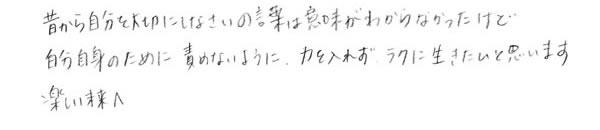 昔から自分を大切にしなさいの言葉は意味がわからなかったけど
自分自身のために 責めないように、力を入れず、ラクに生きたいと思います
楽しい未来へ